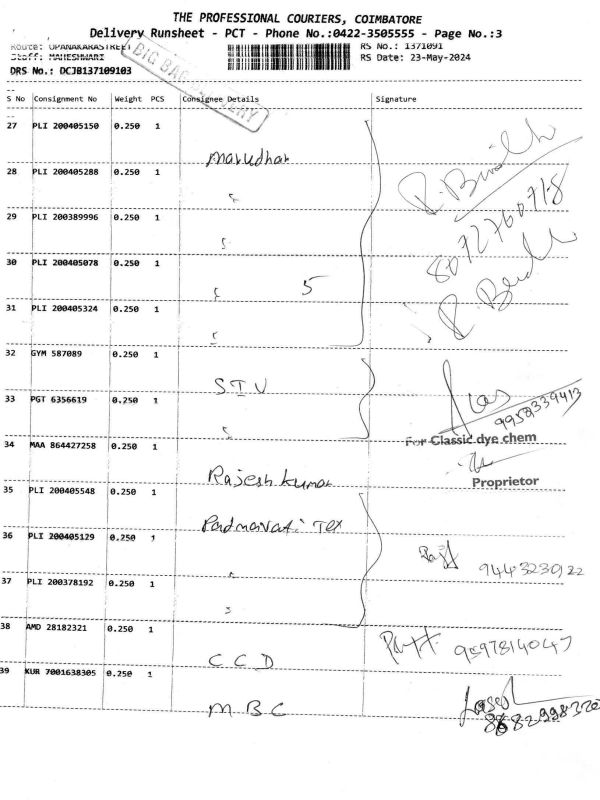 THE PROFESSIONAL COURIERS, COIMBATORE
Delivery Runsheet - PCT - Phone No.:0422-3505555 - Page No.:3
Route: OPANAKARASTREET RS No.: 1371091
Staff: MAHESHWARI RS Date: 23-May-2024
DRS No.: DCJB137109103
BIG BAG DELIVERY
S No Consignment No Weight PCS Consignee Details Signature
27 PLI 200405150 0.250 1
Marudhar
28 PLI 200405288 0.250 1
29 PLI 200389996 0.250 1
8072760718
30 PLI 200405078 0.250 1
5
31 PLI 200405324 0.250 1
32 GYM 587089 0.250 1
STV
33 PGT 6356619 0.250 1
9952339413
For Classic dye chem
34 MAA 864427258 0.250 1
Rajesh kumar
Proprietor
35 PLI 200405548 0.250 1
Padmavati Tex
36 PLI 200405129 0.250 1
37 PLI 200378192 0.250 1
38 AMD 28182321 0.250 1
9597814047
CCD
39 KUR 7001638305 0.250 1
MBC